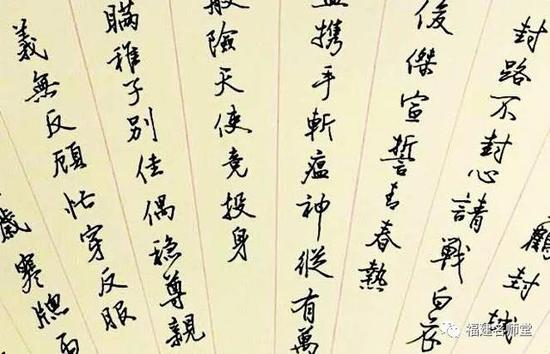 鶴封城
封路不封心請戰白衣
俊傑宣誓青春熱
血携手斬瘟神縱有萬
般險天使竞投身
瞞稚子别佳偶稳尊親
義無反顧忙穿反服
歲寒
福建名师堂